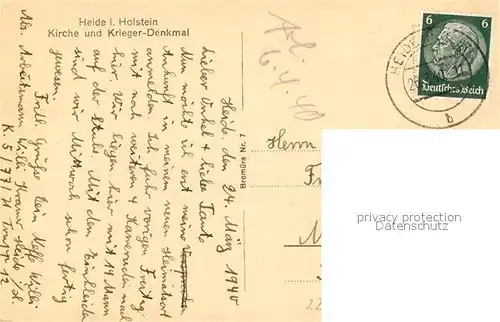 Heide i. Holstein
Kirche und Krieger-Denkmal
6 6
Deutsches Reich
HEIDE
b
6.4.40
Bromüra Nr. 7
Herrn
Heide den 24. März 1940
Lieber Onkel & liebe Tante
dem möchte ich erst meine
Ankunft in meinem neuen Heimatsort
anmelden. Ich fuhr vorigen Freitag
mit noch weiteren 4 Kameraden nach
hier. Wir liegen hier mit 14 Mann
auf der Stube. Mit dem Einkleiden
sind wir Mittwoch schon fertig
gewesen.
Frdl. Grüße Dein Neffe Willi.
Ab. Willi Kramer Heide i/H.
K. 5/77/71 12
privacy protection
watermark